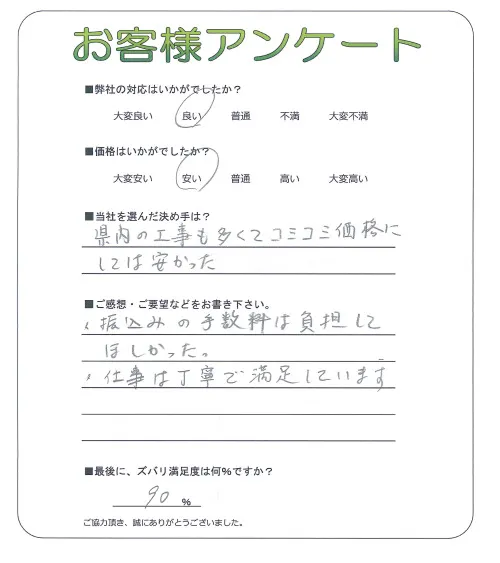 お客様アンケート
■弊社の対応はいかがでしたか？
大変良い 良い 普通 不満 大変不満
■価格はいかがでしたか？
大変安い 安い 普通 高い 大変高い
■当社を選んだ決め手は？
県内の工事も多くてコミコミ価格に
しては安かった
■ご感想・ご要望などをお書き下さい。
・振込みの手数料は負担して
ほしかった。
・仕事は丁寧で満足しています
■最後に、ズバリ満足度は何%ですか？
90 %
ご協力頂き、誠にありがとうございました。